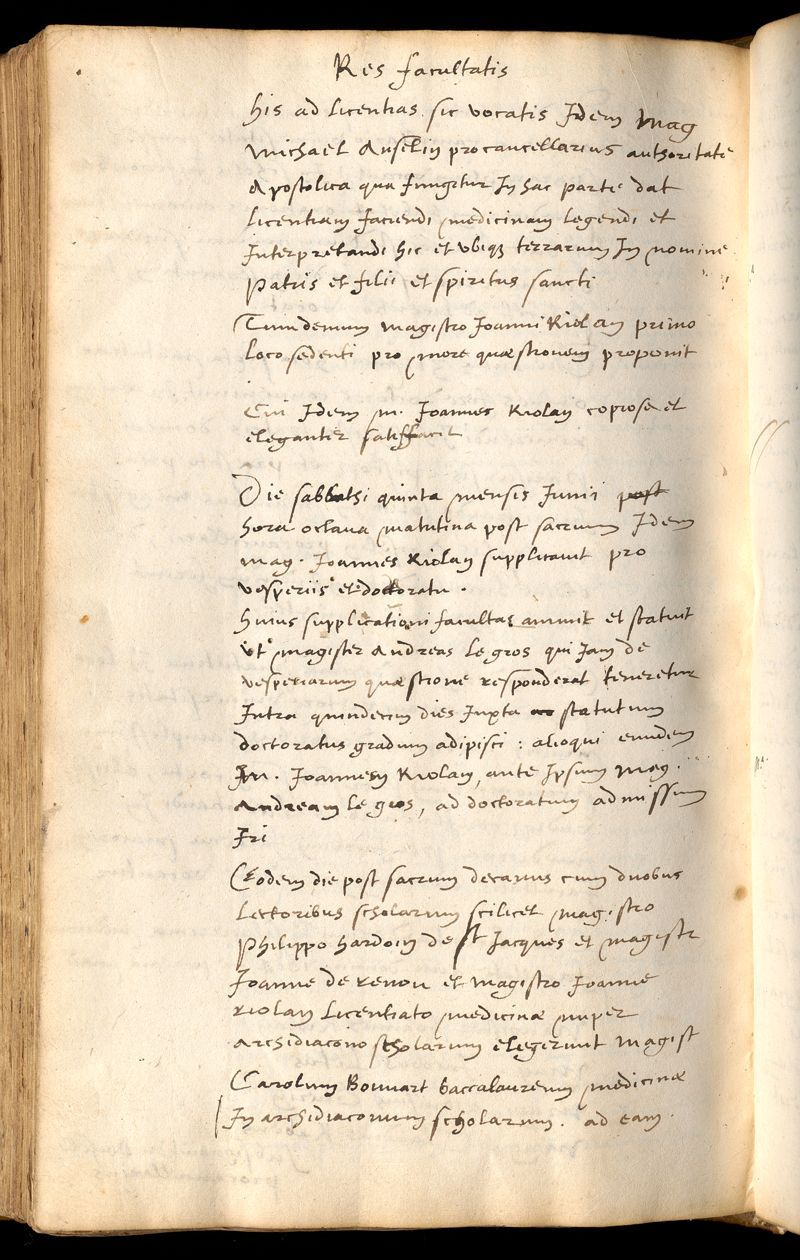 Res facultatis
his ad licentias sic vocatis Idem mag
michael Anselin procancellarius authoritate
Apostolica qua fungitur In hac parte dat
licentiam faciendi medicinam legendi et
Interpretandi hic et ubiqz terrarum In nomine
patris et filii et spiritus sancti
Tum demum magistro Joanni Riolan primo
loco sedenti pro more quæstionem proponit
Cui Idem m. Joannes Riolan copiose et
eleganter satisfacit
Die sabbathi quinta mensis Junii post
hora octava matutina post sacrum Idem
mag. Joannes Riolan supplicavit pro
vesperiis et doctoratu.
huius supplicationi facultas annuit et statuit
ut magister Andreas le gros qui Jam de
vesperiarum quæstione responderat teneretur
Intra quindecim dies Juxta statutum
doctoratus gradum adipisci : alioqui eundem
m. Joannem Riolan, ante Ipsum mag.
Andream le gros, ad doctoratum admissum
Iri
Eodem die post sacrum decanus cum duobus
lectoribus scholarum scilicet magistro
philippo hardoin de st Jacques et magistr
Joanne de renou et magistro Joanne
riolan licentiato medicinæ nuper
archidiacono scholarum elegerunt magist
Carolum Bouvart baccalaureum medicinæ
In archidiaconum scholarum. ad eam